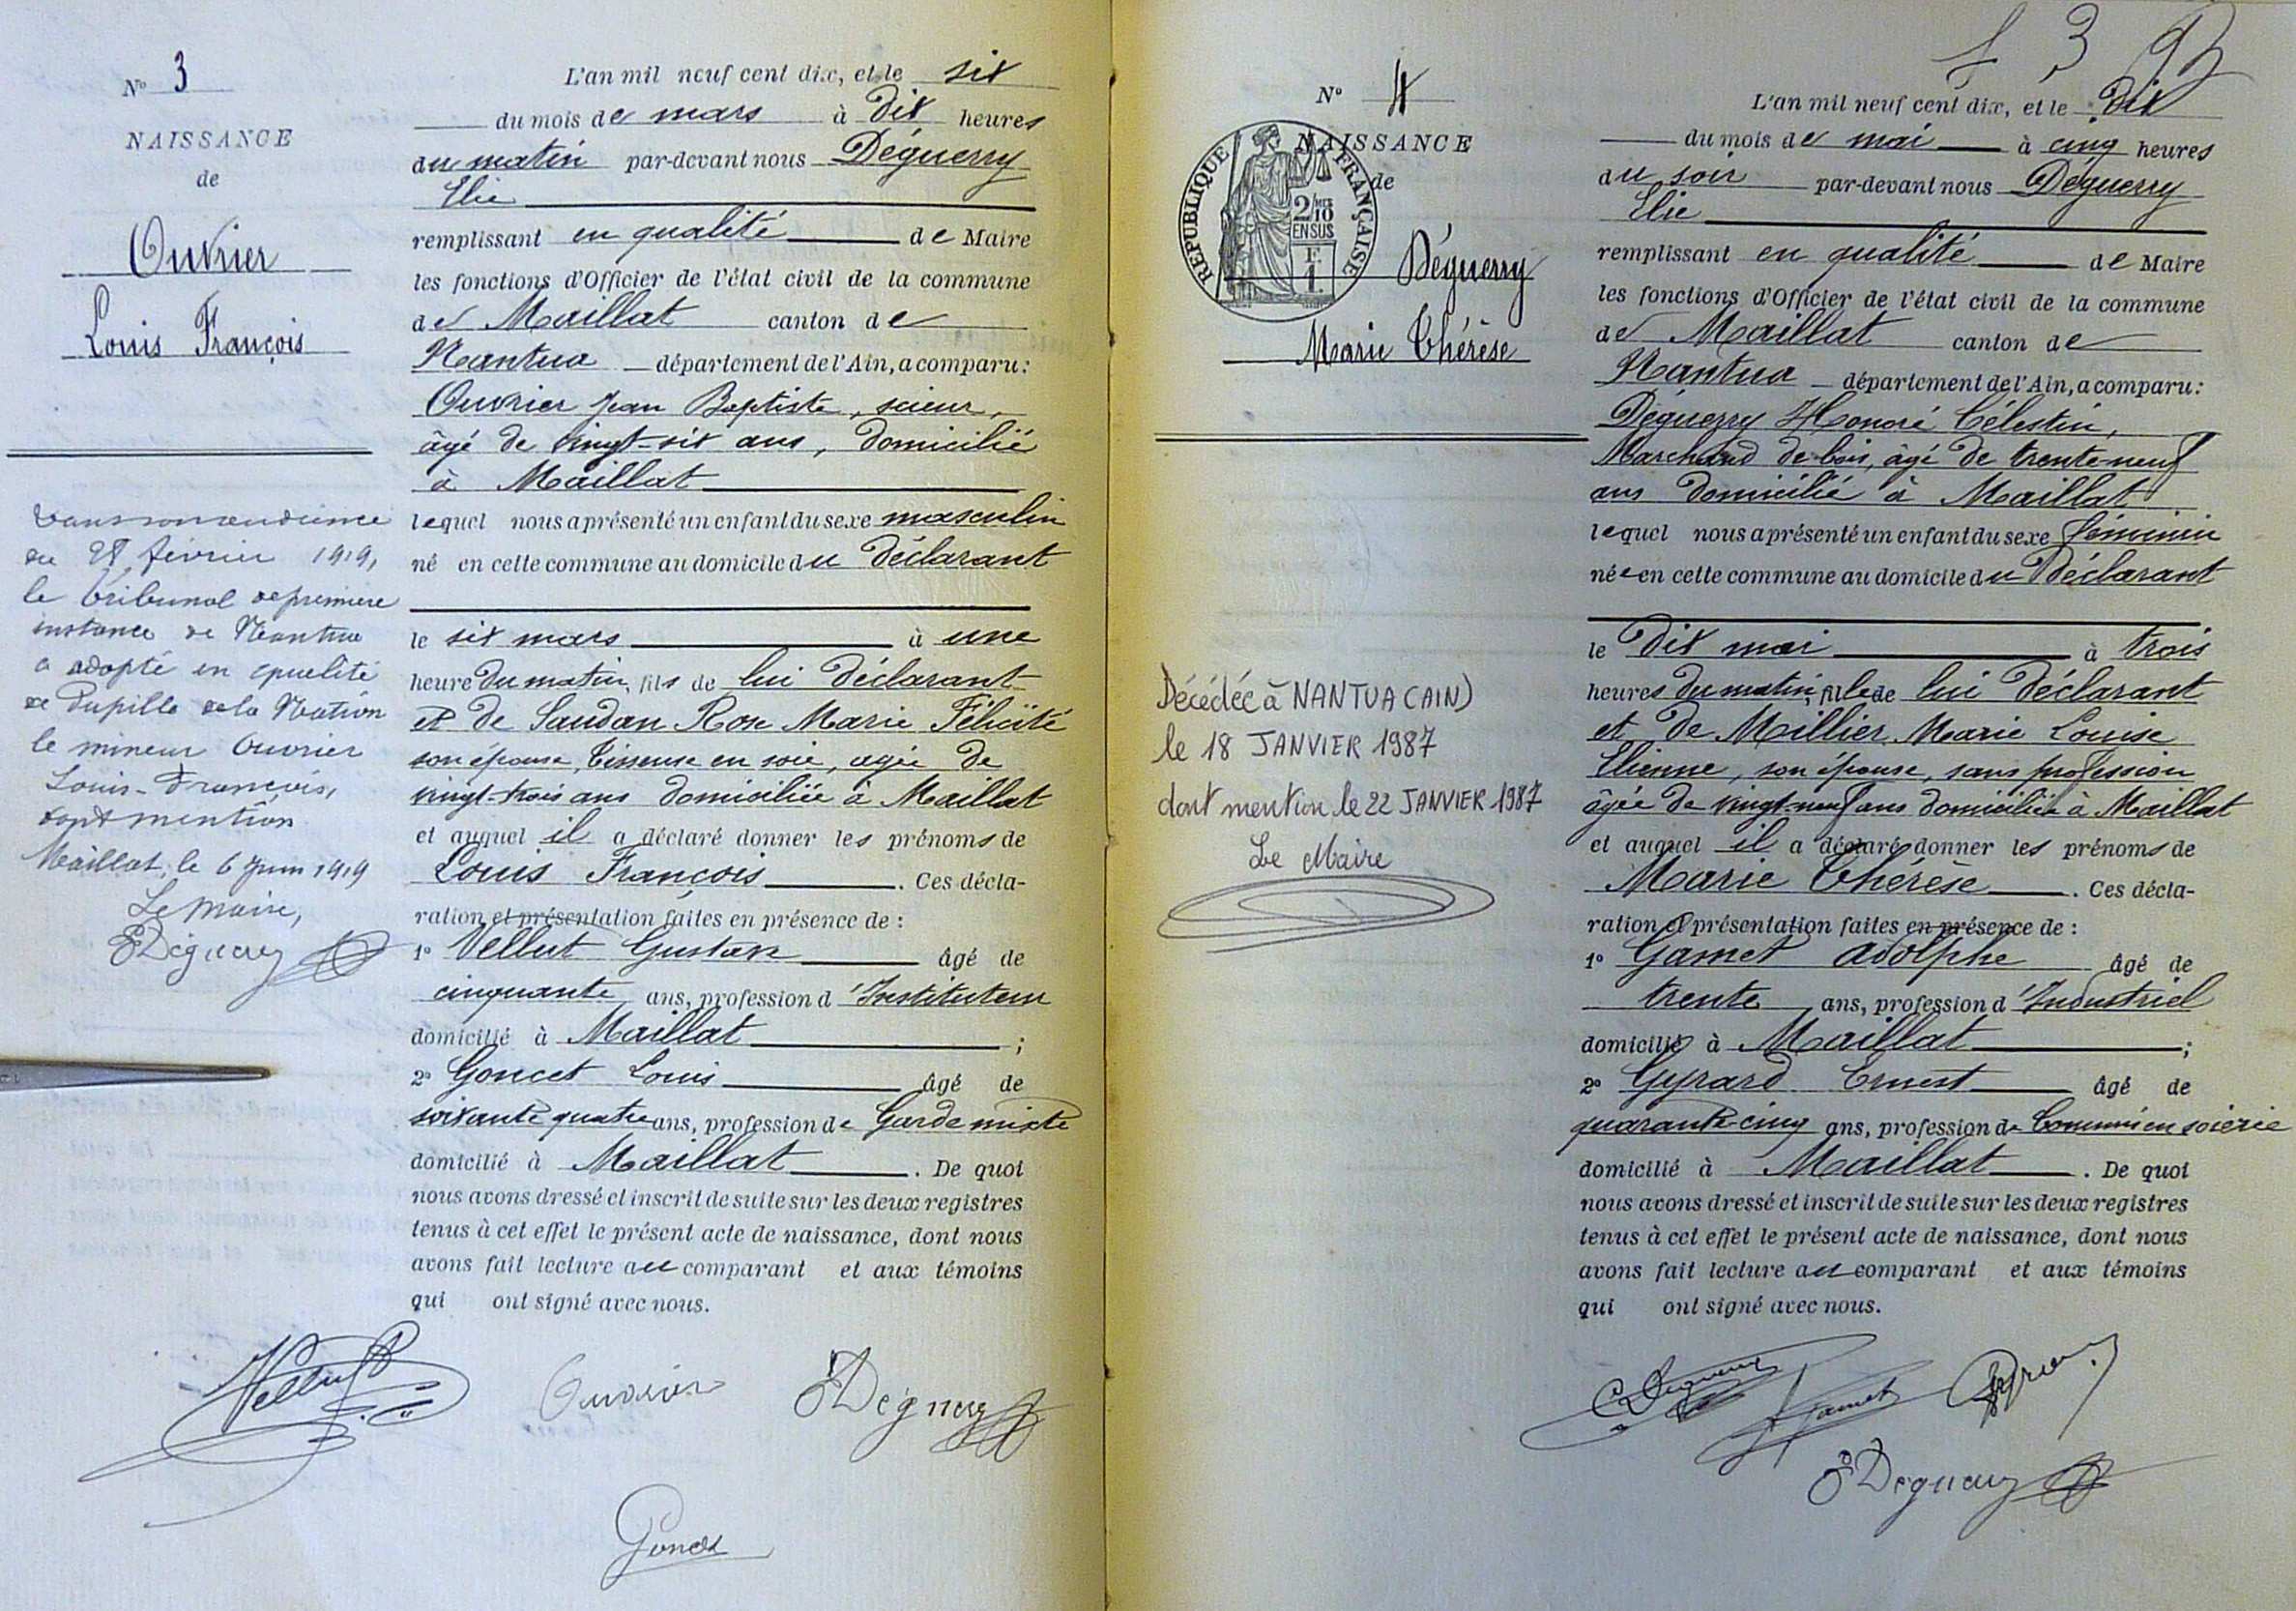 N° 3
NAISSANCE
de
Ouvrier
Louis François
Dans son audience
du 28 février 1919,
le tribunal de première
instance de Nantua
a adopté en qualité
de Pupille de la Nation
le mineur Ouvrier
Louis-François,
dont mention
Maillat, le 6 Juin 1919
Le Maire,
EDéguerry
L'an mil neuf cent dix, et le six
du mois de mars à dix heures
du matin par-devant nous Déguerry
Elie
remplissant en qualité de Maire
les fonctions d'Officier de l'état civil de la commune
de Maillat canton de
Nantua département de l'Ain, a comparu :
Ouvrier Jean Baptiste, scieur,
âgé de vingt-six ans, domicilié
à Maillat
lequel nous a présenté un enfant du sexe masculin
né en cette commune au domicile du déclarant
le six mars à une
heure du matin, fils de lui déclarant
et de Saudan Rose Marie Félicité
son épouse, tisseuse en soie, agée de
vingt-trois ans domiciliée à Maillat
et auquel il a déclaré donner les prénoms de
Louis François. Ces décla-
ration et présentation faites en présence de :
1° Vellut Gustave âgé de
cinquante ans, profession d'Instituteur
domicilié à Maillat ;
2° Goncet Louis âgé de
soixante quatre ans, profession de Garde mixte
domicilié à Maillat. De quoi
nous avons dressé et inscrit de suite sur les deux registres
tenus à cet effet le présent acte de naissance, dont nous
avons fait lecture au comparant et aux témoins
qui ont signé avec nous.
Vellut Ouvrier EDéguerry
Goncet
N° 4
NAISSANCE
de
REPUBLIQUE FRANÇAISE
2/10 EN SUS
F. 1.
Déguerry
Marie Thérèse
Décédée à NANTUA (AIN)
le 18 JANVIER 1987
dont mention le 22 JANVIER 1987
Le Maire
L'an mil neuf cent dix, et le dix
du mois de mai à cinq heures
du soir par-devant nous Déguerry
Elie
remplissant en qualité de Maire
les fonctions d'Officier de l'état civil de la commune
de Maillat canton de
Nantua département de l'Ain, a comparu :
Déguerry Honoré Célestin,
Marchand de bois, âgé de trente-neuf
ans domicilié à Maillat
lequel nous a présenté un enfant du sexe féminin
née en cette commune au domicile du déclarant
le dix mai à trois
heures du matin, fille de lui déclarant
et de Millier Marie Louise
Etienne, son épouse, sans profession
âgée de vingt-neuf ans domiciliée à Maillat
et auquel il a déclaré donner les prénoms de
Marie Thérèse. Ces décla-
ration et présentation faites en présence de :
1° Gamet Adolphe âgé de
trente ans, profession d'Industriel
domicilié à Maillat ;
2° Gyrard Ernest âgé de
quarante-cinq ans, profession de Commis en soierie
domicilié à Maillat. De quoi
nous avons dressé et inscrit de suite sur les deux registres
tenus à cet effet le présent acte de naissance, dont nous
avons fait lecture au comparant et aux témoins
qui ont signé avec nous.
CDéguerry Gamet
EDéguerry